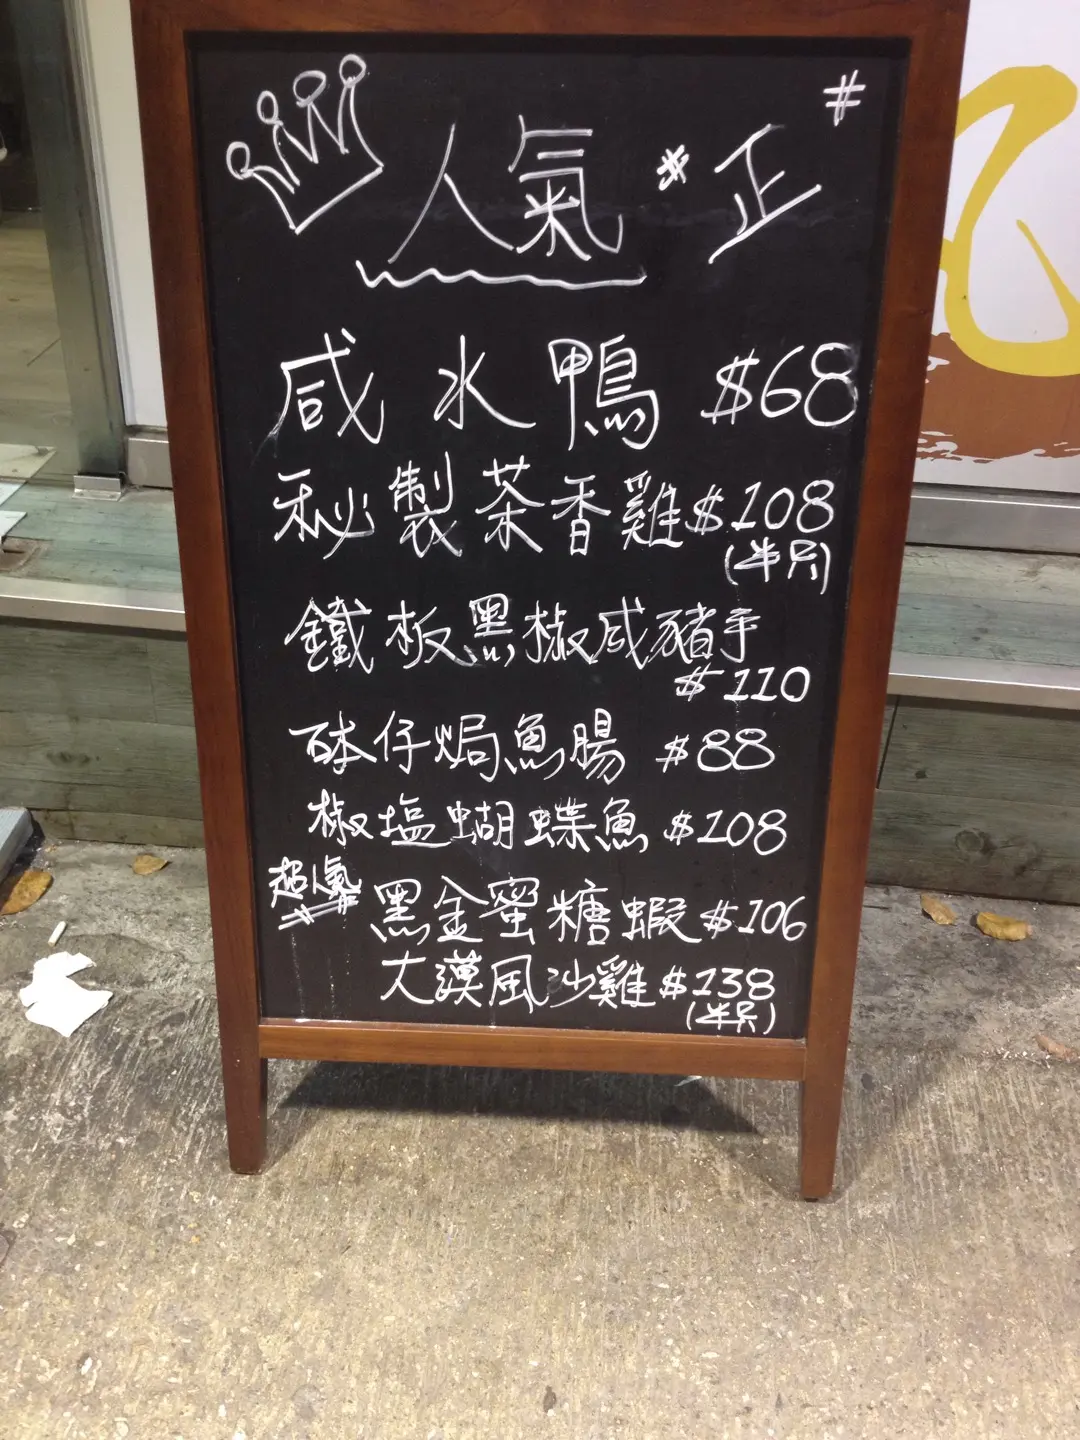 人氣 # 正 #
咸水鴨 $68
秘製茶香雞 $108
(半只)
鐵板黑椒咸豬手
$110
砵仔焗魚腸 $88
椒塩蝴蝶魚 $108
超人氣 黑金蜜糖蝦 $106
大漠風沙雞 $138
(半只)